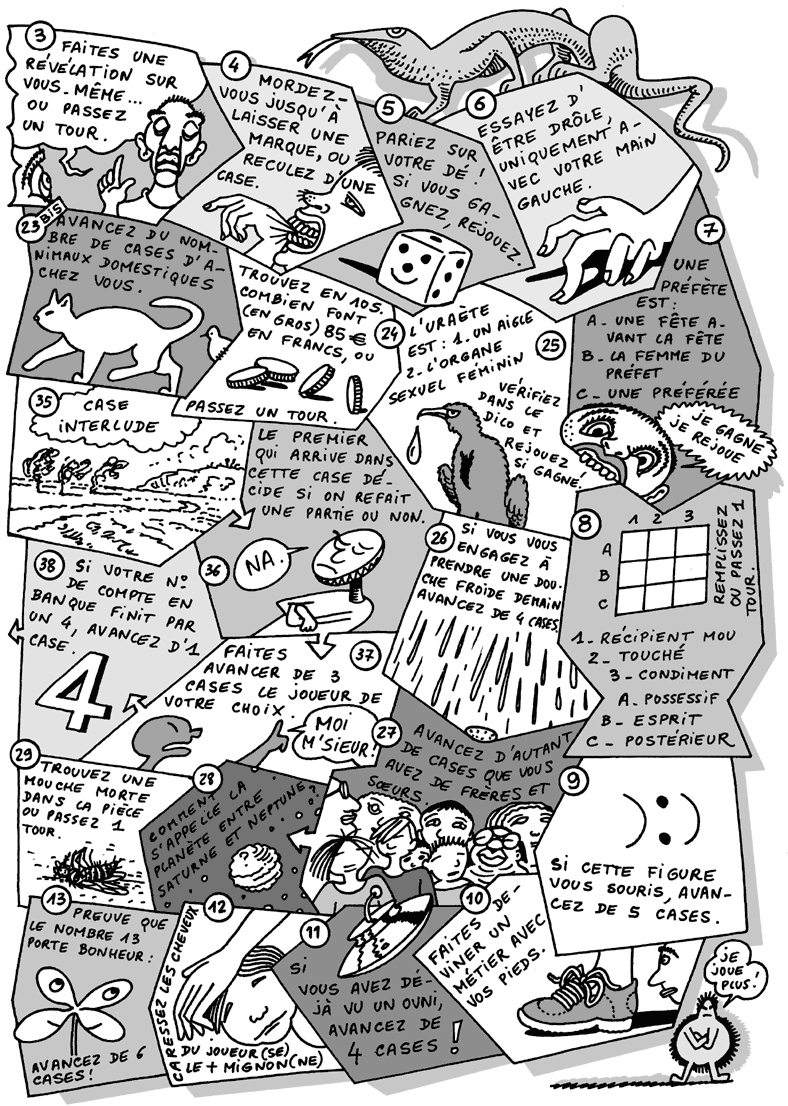 3
FAITES UNE
RÉVÉLATION SUR
VOUS-MÊME...
OU PASSEZ
UN TOUR.
4
MORDEZ-
VOUS JUSQU'À
LAISSER UNE
MARQUE, OU
RECULEZ D'UNE
CASE.
5
PARIEZ SUR
VOTRE DÉ !
SI VOUS GA-
GNEZ, REJOUEZ.
6
ESSAYEZ D'
ÊTRE DRÔLE,
UNIQUEMENT A-
VEC VOTRE MAIN
GAUCHE.
7
UNE
PRÉFÊTE
EST :
A_ UNE FÊTE A-
VANT LA FÊTE
B_ LA FEMME DU
PRÉFET
C_ UNE PRÉFÉRÉE
JE GAGNE
JE REJOUE
23 BIS
AVANCEZ DU NOM-
BRE DE CASES D'A-
NIMAUX DOMESTIQUES
CHEZ VOUS.
24
TROUVEZ EN 10S.
COMBIEN FONT
(EN GROS) 85 €
EN FRANCS, OU
PASSEZ UN TOUR.
25
L'URAÈTE
EST : 1. UN AIGLE
2. L'ORGANE
SEXUEL FÉMININ
VÉRIFIEZ
DANS LE
DICO ET
REJOUEZ
SI GAGNÉ !
35
CASE
INTERLUDE
36
LE PREMIER
QUI ARRIVE DANS
CETTE CASE DÉ-
CIDE SI ON REFAIT
UNE PARTIE OU NON.
NA.
26
SI VOUS VOUS
ENGAGEZ À
PRENDRE UNE DOU-
CHE FROIDE DEMAIN
AVANCEZ DE 4 CASES.
8
1 2 3
A
B
C
REMPLISSEZ
OU PASSEZ 1
TOUR.
1_ RÉCIPIENT MOU
2_ TOUCHÉ
3_ CONDIMENT
A_ POSSESSIF
B_ ESPRIT
C_ POSTÉRIEUR
38
SI VOTRE N°
DE COMPTE EN
BANQUE FINIT PAR
UN 4, AVANCEZ D'1
CASE.
4
37
FAITES
AVANCER DE 3
CASES LE JOUEUR DE
VOTRE CHOIX.
MOI
M'SIEUR !
27
AVANCEZ D'AUTANT
DE CASES QUE VOUS
AVEZ DE FRÈRES ET
SŒURS
29
TROUVEZ UNE
MOUCHE MORTE
DANS LA PIÈCE
OU PASSEZ 1
TOUR.
28
COMMENT
S'APPELLE LA
PLANÈTE ENTRE
SATURNE ET NEPTUNE ?
9
SI CETTE FIGURE
VOUS SOURIS, AVAN-
CEZ DE 5 CASES.
13
PREUVE QUE
LE NOMBRE 13
PORTE BONHEUR :
AVANCEZ DE 6
CASES !
12
CARESSEZ LES CHEVEUX
DU JOUEUR(SE)
LE + MIGNON(NE)
11
SI
VOUS AVEZ DÉ-
JÀ VU UN OVNI,
AVANCEZ DE
4 CASES !
10
FAITES DE-
VINER UN
MÉTIER AVEC
VOS PIEDS.
JE
JOUE
PLUS !